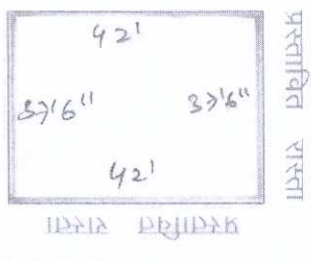 42'
37'6"
37'6"
42'
प्रस्तावित रास्ता
प्रस्तावित रास्ता